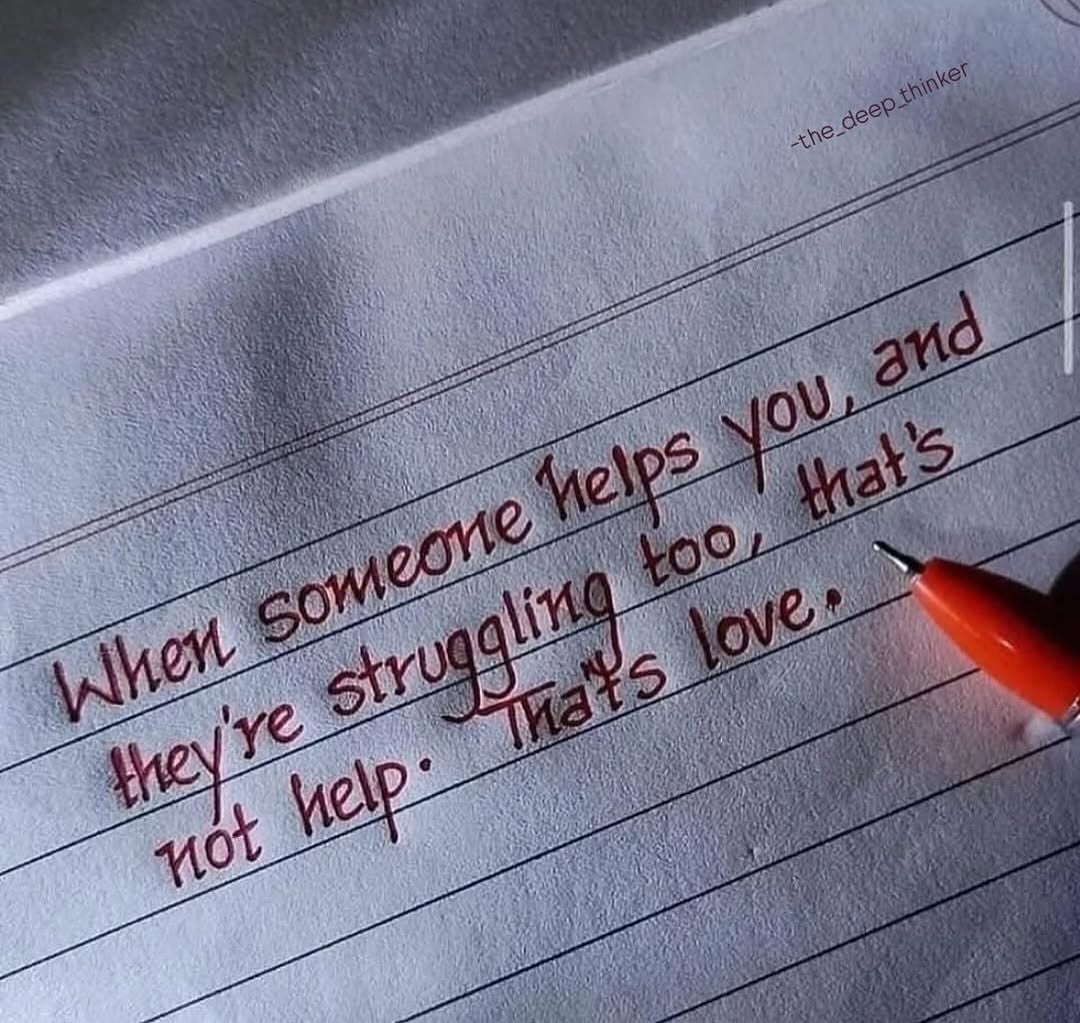 -the_deep_thinker
When someone helps you, and
they're struggling too, that's
not help. That's love.